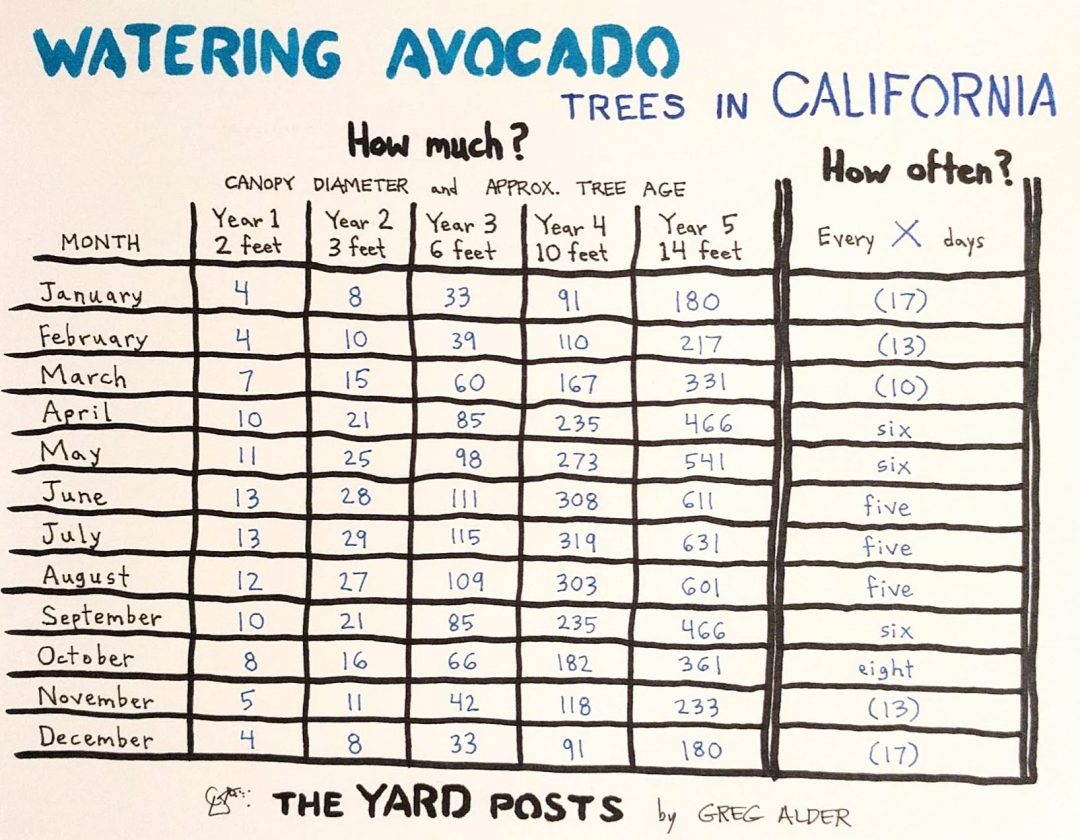 WATERING AVOCADO
TREES IN CALIFORNIA
How much?
How often?
CANOPY DIAMETER and APPROX. TREE AGE
MONTH Year 1 2 feet Year 2 3 feet Year 3 6 feet Year 4 10 feet Year 5 14 feet Every X days
January 4 8 33 91 180 (17)
February 4 10 39 110 217 (13)
March 7 15 60 167 331 (10)
April 10 21 85 235 466 six
May 11 25 98 273 541 six
June 13 28 111 308 611 five
July 13 29 115 319 631 five
August 12 27 109 303 601 five
September 10 21 85 235 466 six
October 8 16 66 182 361 eight
November 5 11 42 118 233 (13)
December 4 8 33 91 180 (17)
THE YARD POSTS by GREG ALDER